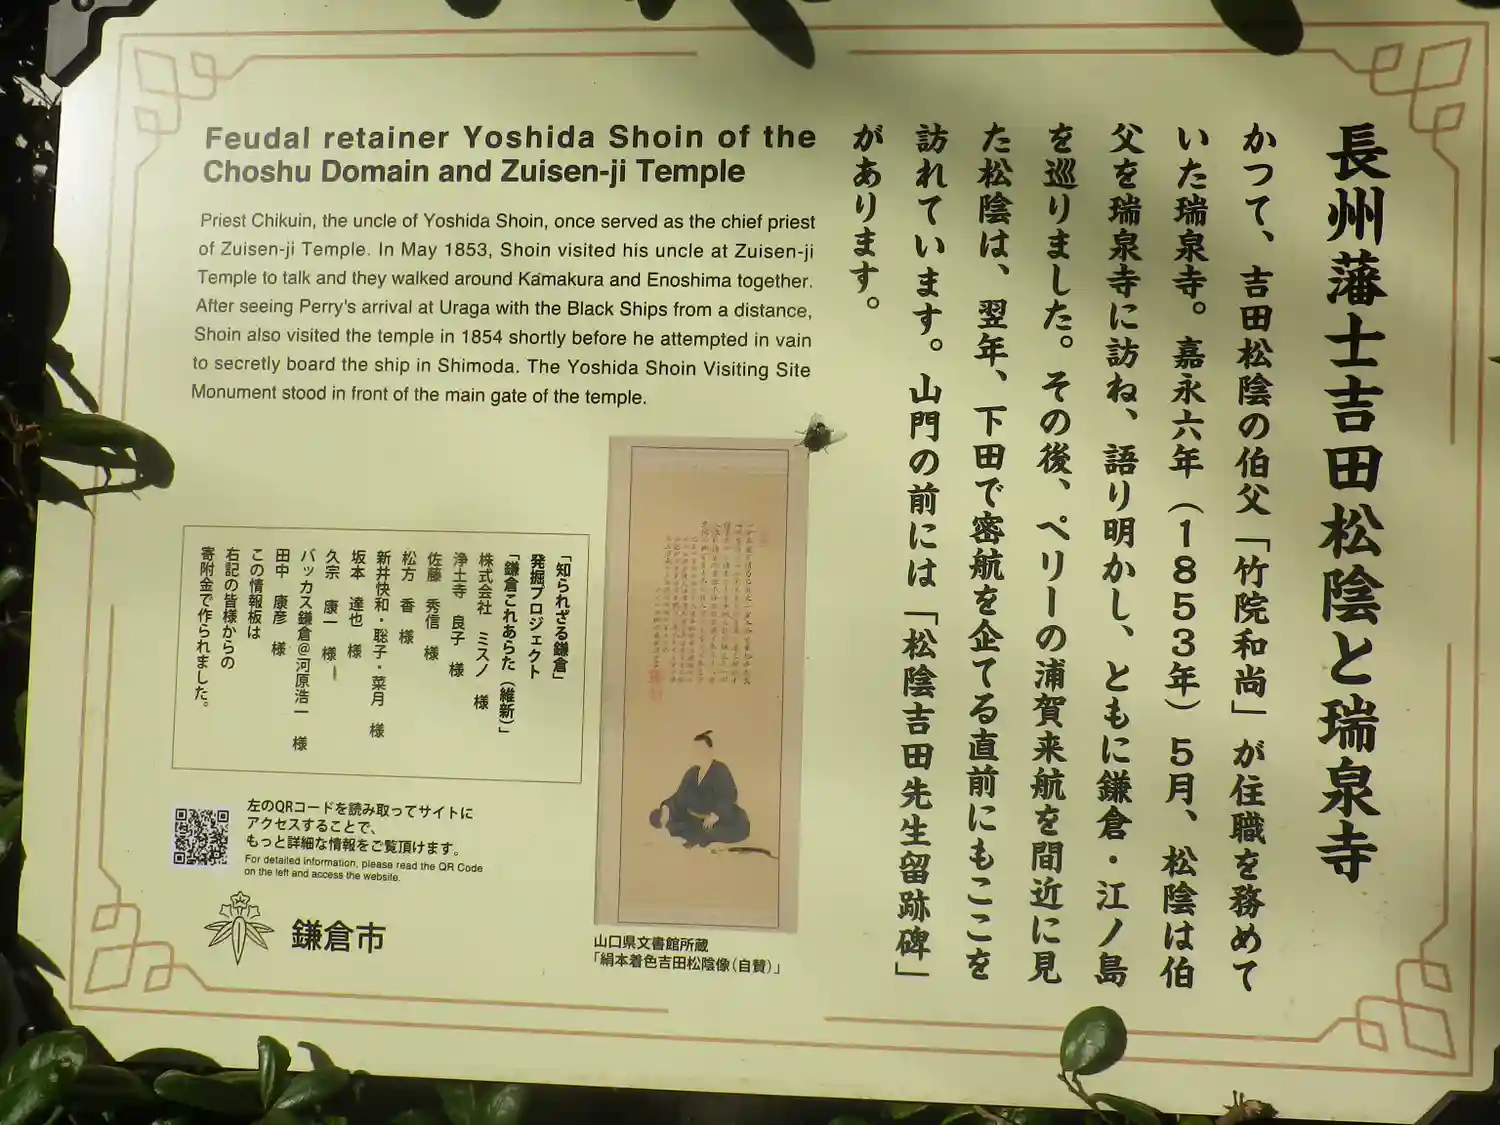 長州藩士吉田松陰と瑞泉寺
かつて、吉田松陰の伯父「竹院和尚」が住職を務めて
いた瑞泉寺。嘉永六年（1853年）5月、松陰は伯
父を瑞泉寺に訪ね、語り明かし、ともに鎌倉・江ノ島
を巡りました。その後、ペリーの浦賀来航を間近に見
た松陰は、翌年、下田で密航を企てる直前にもここを
訪れています。山門の前には「松陰吉田先生留跡碑」
があります。
Feudal retainer Yoshida Shoin of the
Choshu Domain and Zuisen-ji Temple
Priest Chikuin, the uncle of Yoshida Shoin, once served as the chief priest
of Zuisen-ji Temple. In May 1853, Shoin visited his uncle at Zuisen-ji
Temple to talk and they walked around Kamakura and Enoshima together.
After seeing Perry's arrival at Uraga with the Black Ships from a distance,
Shoin also visited the temple in 1854 shortly before he attempted in vain
to secretly board the ship in Shimoda. The Yoshida Shoin Visiting Site
Monument stood in front of the main gate of the temple.
「知られざる鎌倉」
発掘プロジェクト
「鎌倉これあらた（維新）」
株式会社 ミスノ 様
浄土寺 良子 様
佐藤 秀信 様
松方 香 様
新井快和・聡子・菜月 様
坂本 達也 様
久宗 康一 様
バッカス鎌倉＠河原浩一 様
田中 康彦 様
この情報板は
右記の皆様からの
寄附金で作られました。
左のQRコードを読み取ってサイトに
アクセスすることで、
もっと詳細な情報をご覧頂けます。
For detailed information, please read the QR Code
on the left and access the website.
鎌倉市
山口県文書館所蔵
「絹本着色吉田松陰像（自賛）」